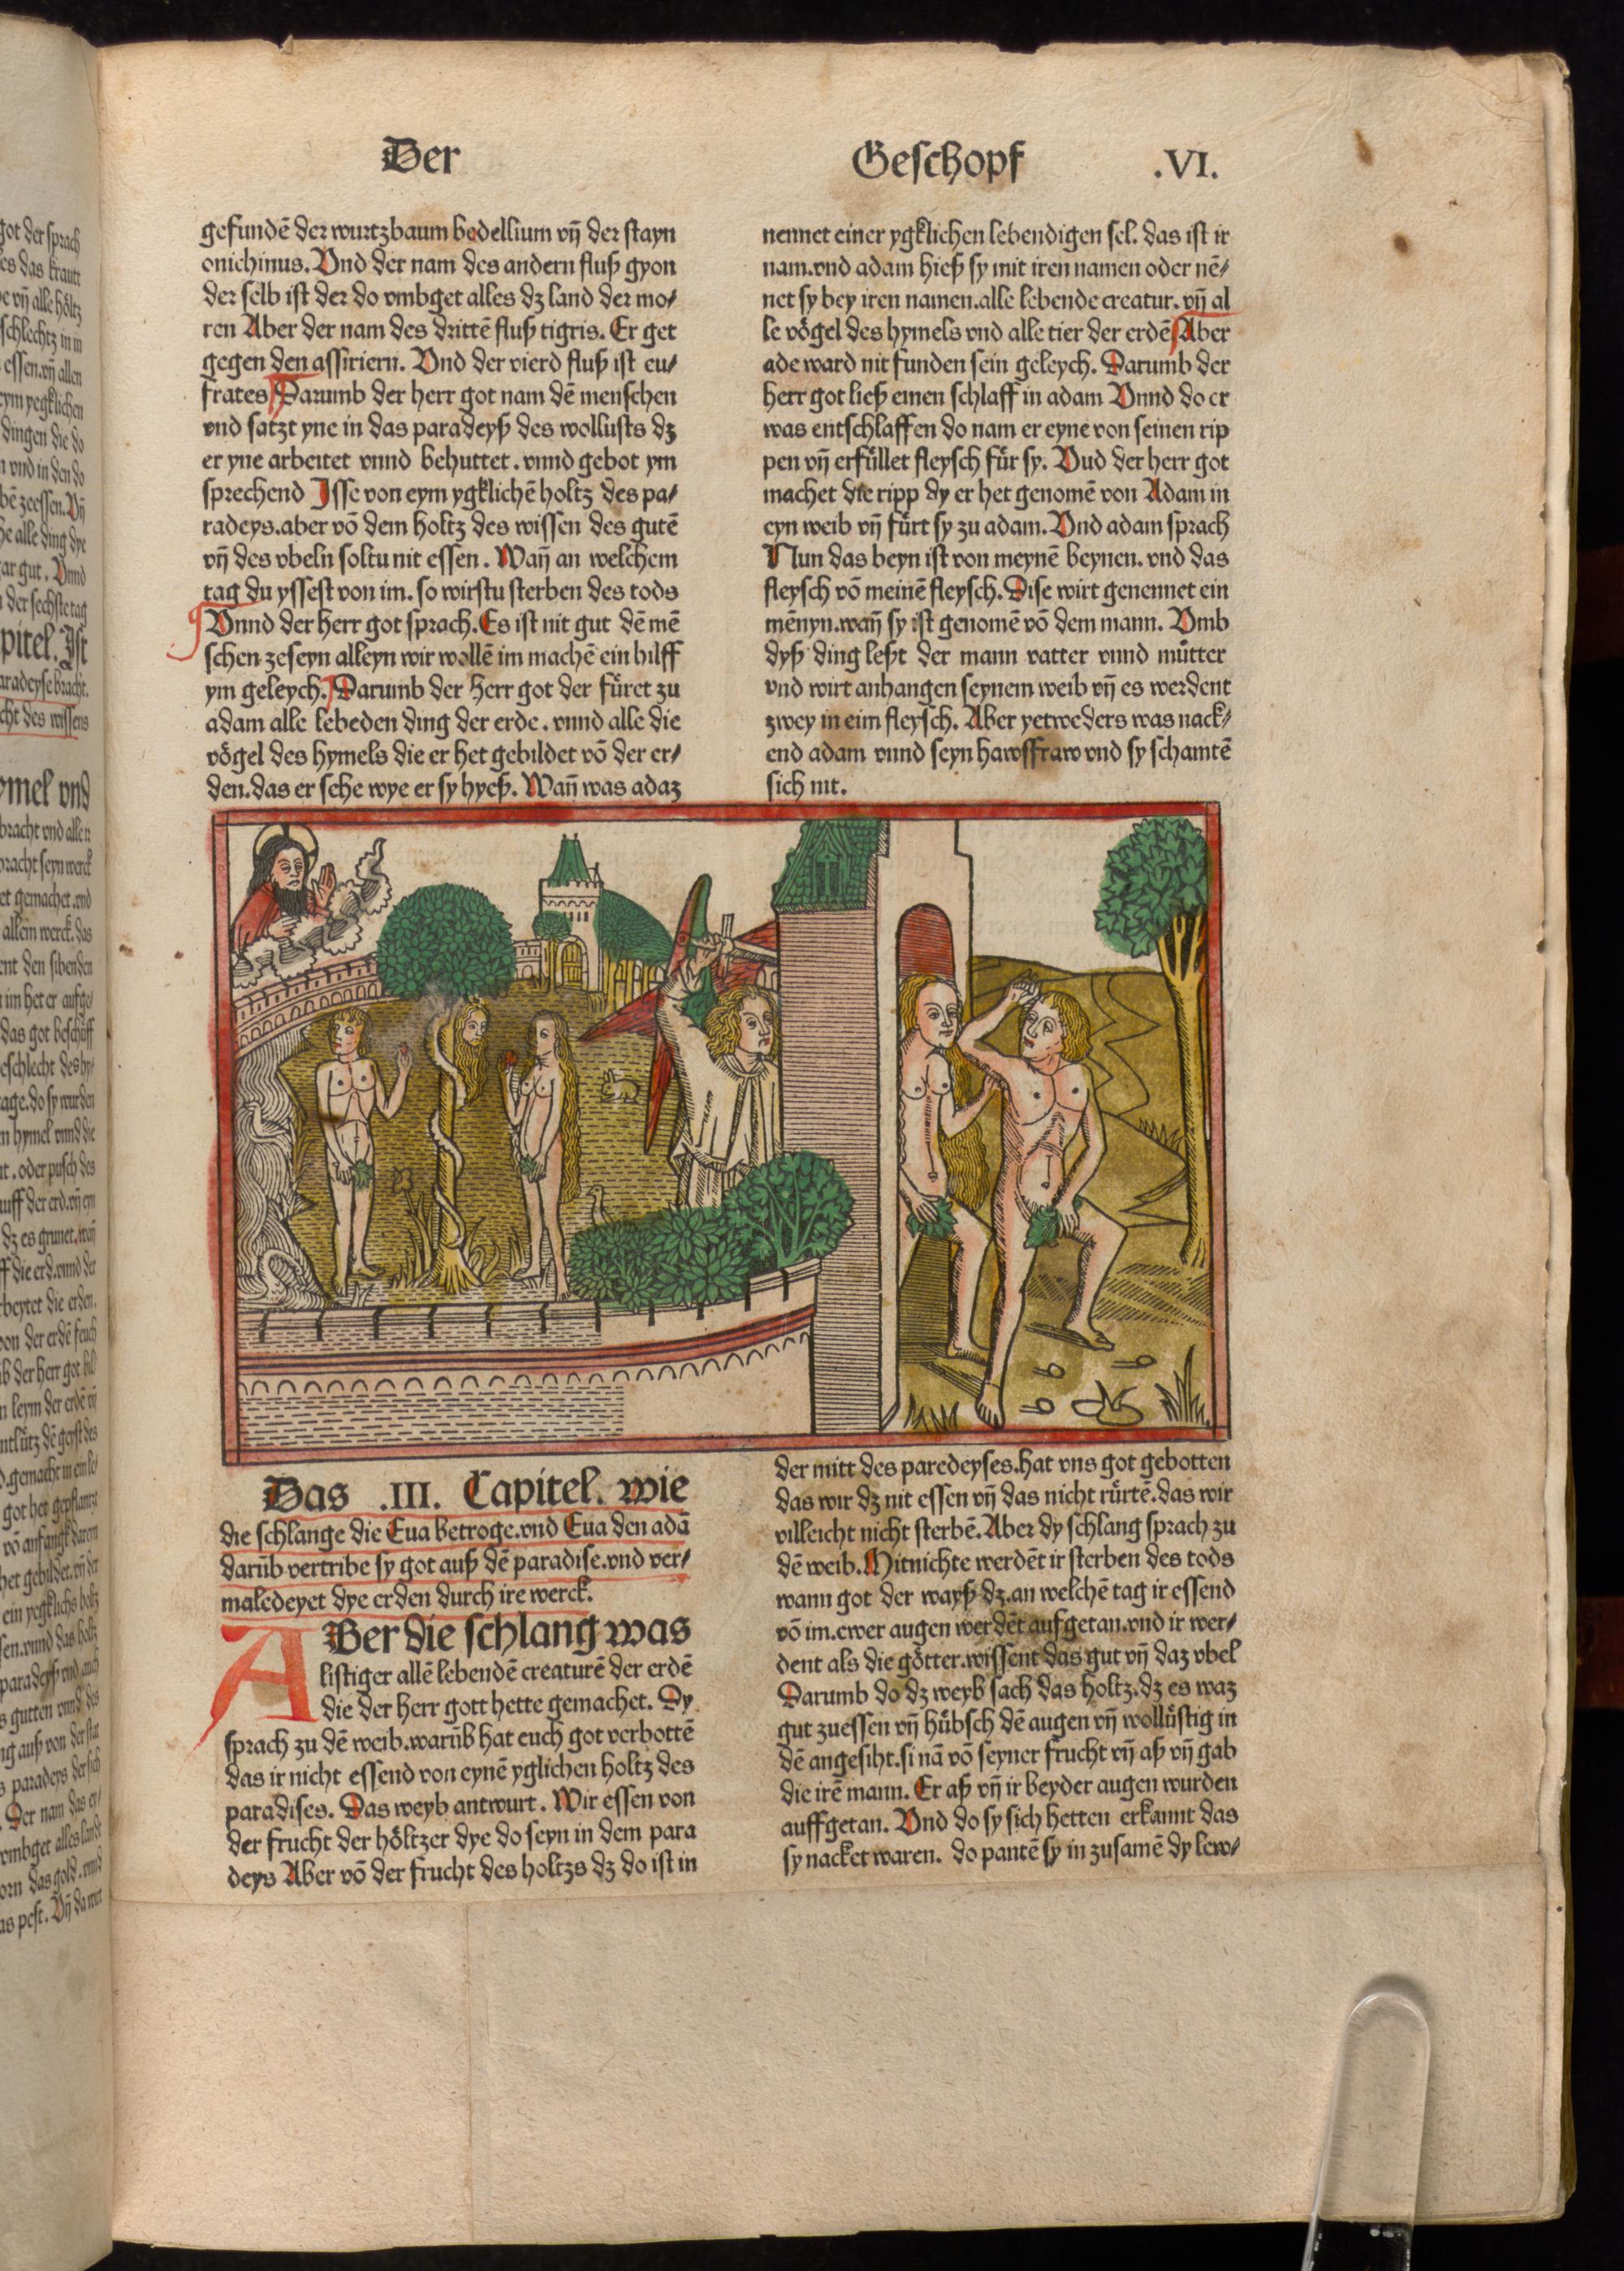 Der Geschopf .VI.
gefundē der wurtzbaum bedellium vñ der stayn
onichinus. Vnd der nam des andern fluß gyon
der selb ist der do vmbget alles dz land der mo⸗
ren Aber der nam des drittē fluß tigris. Er get
gegen den assiriern. Vnd der vierd fluß ist eu⸗
frates Darumb der herr got nam dē menschen
vnd satzt yne in das paradeyß des wollusts dz
er yne arbeitet vnnd behuttet. vnnd gebot ym
sprechend Isse von eym ygklichē holtz des pa⸗
radeys. aber vō dem holtz des wissen des gutē
vñ des vbeln soltu nit essen. Wañ an welchem
tag du yssest von im. so wirstu sterben des tods
Vnnd der herr got sprach. Es ist nit gut dē mē
schen zeseyn alleyn wir wollē im machē ein hilff
ym geleych. Darumb der Herr got der füret zu
adam alle lebeden ding der erde. vnnd alle die
vögel des hymels die er het gebildet vō der er⸗
den. das er sehe wye er sy hyeß. Wañ was adaz
nennet einer ygklichen lebendigen sel. das ist ir
nam. vnd adam hieß sy mit iren namen oder nē⸗
net sy bey iren namen. alle lebende creatur. vñ al
le vögel des hymels vnd alle tier der erdē Aber
ade ward nit funden sein geleych. Darumb der
herr got ließ einen schlaff in adam Vnnd do er
was entschlaffen do nam er eyne von seinen rip
pen vñ erfüllet fleysch für sy. Vud der herr got
machet die ripp dy er het genomē von Adam in
eyn weib vñ fürt sy zu adam. Vnd adam sprach
Nun das beyn ist von meynē beynen. vnd das
fleysch vō meinē fleysch. Dise wirt genennet ein
mēnyn. wañ sy ist genomē vō dem mann. Vmb
dyß ding leßt der mann vatter vnnd mütter
vnd wirt anhangen seynem weib vñ es werdent
zwey in eim fleysch. Aber yetweders was nack⸗
end adam vnnd seyn hawsffraw vnd sy schamtē
sich nit.
Das .III. Capitel. wie
die schlange die Eua betroge. vnd Eua den adā
darūb vertribe sy got auß dē paradise. vnd ver⸗
maledeyet dye erden durch ire werck.
ABer die schlang was
listiger allē lebendē creaturē der erdē
die der herr gott hette gemachet. Dy
sprach zu dē weib. warūb hat euch got verbottē
das ir nicht essend von eynē yglichen holtz des
paradises. Das weyb antwurt. Wir essen von
der frucht der höltzer dye do seyn in dem para
deys Aber vō der frucht des holtzs dz do ist in
der mitt des paredeyses. hat vns got gebotten
das wir dz nit essen vñ das nicht rürtē. das wir
villeicht nicht sterbē. Aber dy schlang sprach zu
dē weib. Mitnichte werdēt ir sterben des tods
wann got der wayß dz. an welchē tag ir essend
vō im. ewer augen werdēt aufgetan. vnd ir wer⸗
dent als die götter. wissent das gut vñ daz vbel
Darumb do dz weyb sach das holtz. dz es waz
gut zuessen vñ hübsch dē augen vñ wollüstig in
dē angesiht. si nā vō seyner frucht vñ aß vñ gab
die irē mann. Er aß vñ ir beyder augen wurden
auffgetan. Vnd do sy sich hetten erkannt das
sy nacket waren. do pantē sy in zusamē dy lew⸗